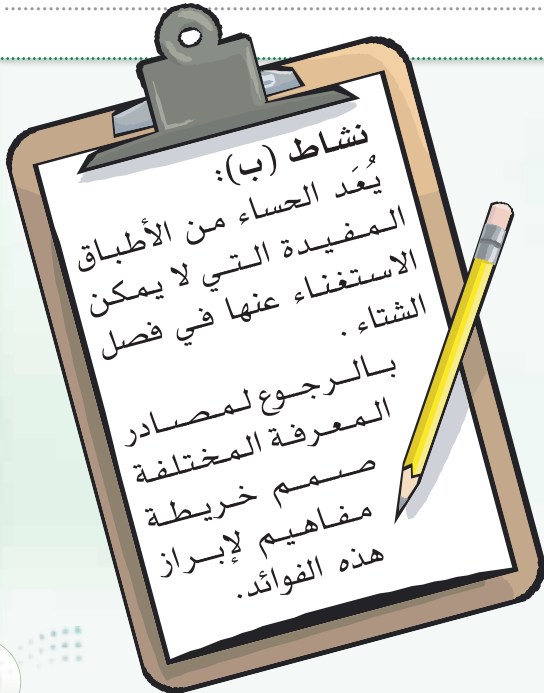 نشاط (ب):
يُعَد الحساء من الأطباق
المفيدة التي لا يمكن
الاستغناء عنها في فصل
الشتاء .
بالرجوع لمصادر
المعرفة المختلفة
صمم خريطة
مفاهيم لإبراز
هذه الفوائد.